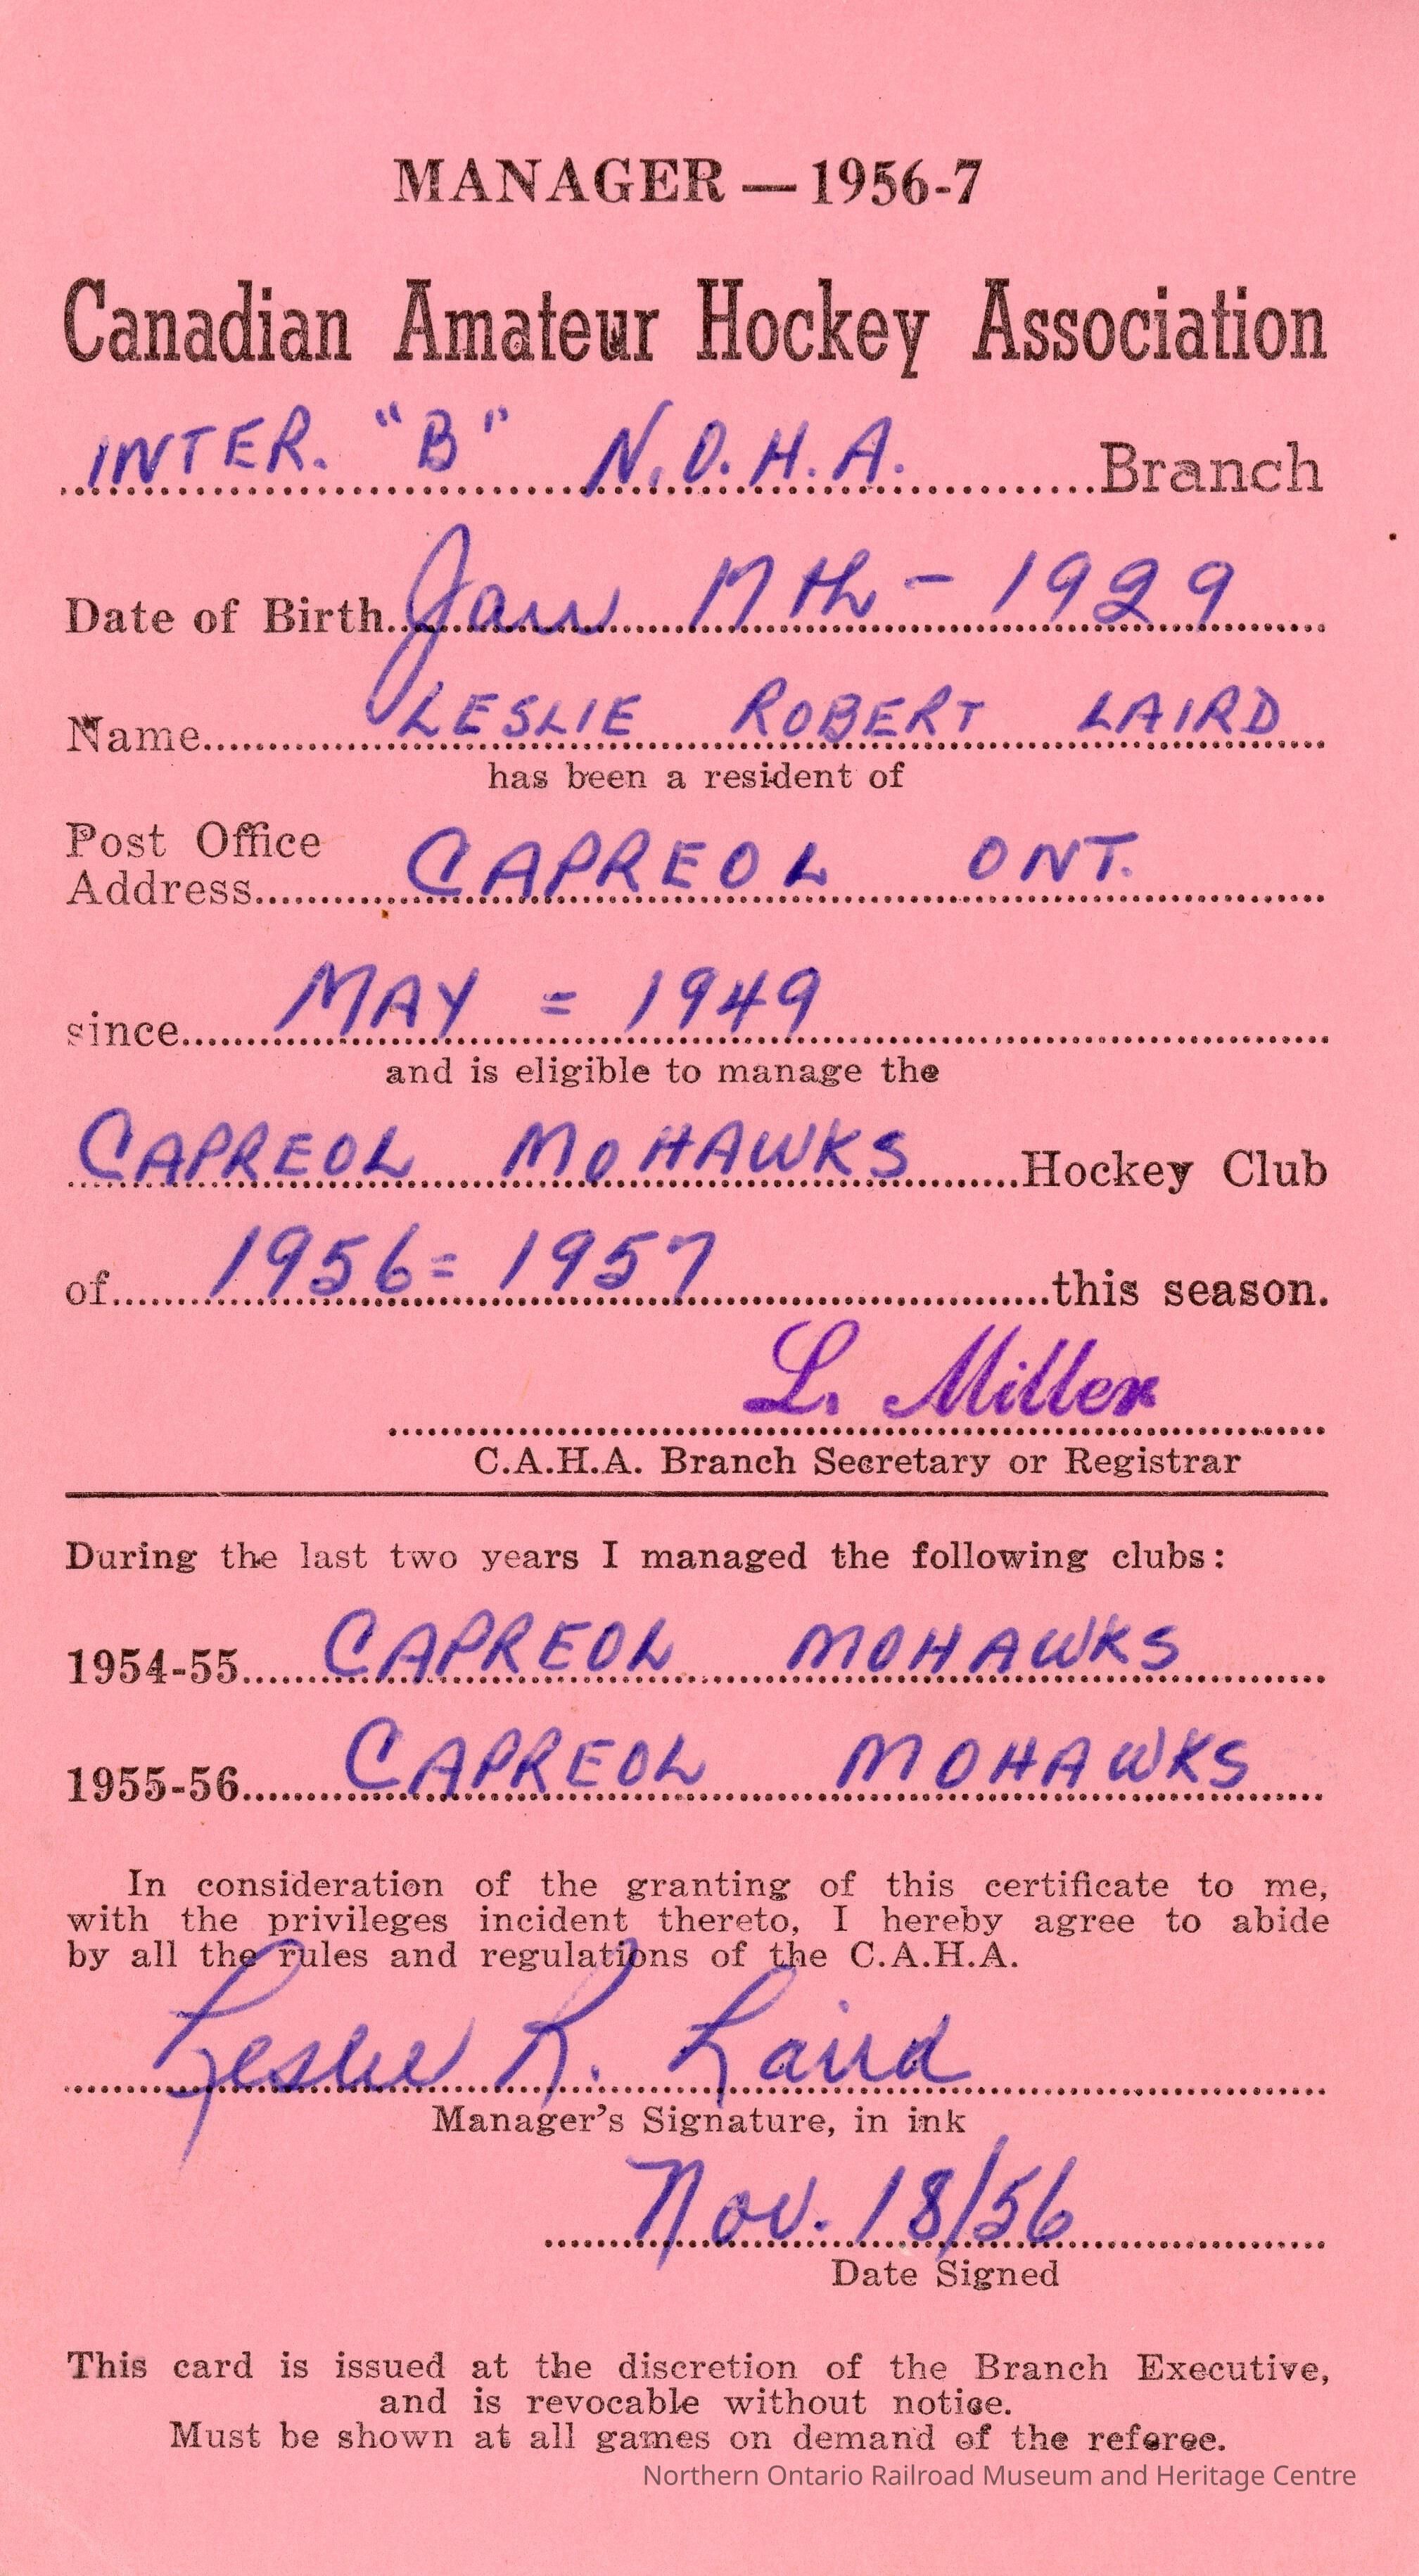 MANAGER — 1956-7
Canadian Amateur Hockey Association
INTER. "B" N.O.H.A. Branch
Date of Birth Jan 17th - 1929
Name LESLIE ROBERT LAIRD
has been a resident of
Post Office
Address CAPREOL ONT.
since MAY = 1949
and is eligible to manage the
CAPREOL MOHAWKS Hockey Club
of 1956 = 1957 this season.
L. Miller
C.A.H.A. Branch Secretary or Registrar
During the last two years I managed the following clubs:
1954-55 CAPREOL MOHAWKS
1955-56 CAPREOL MOHAWKS
In consideration of the granting of this certificate to me,
with the privileges incident thereto, I hereby agree to abide
by all the rules and regulations of the C.A.H.A.
Leslie R. Laird
Manager's Signature, in ink
Nov. 18/56
Date Signed
This card is issued at the discretion of the Branch Executive,
and is revocable without notice.
Must be shown at all games on demand of the referee.
Northern Ontario Railroad Museum and Heritage Centre